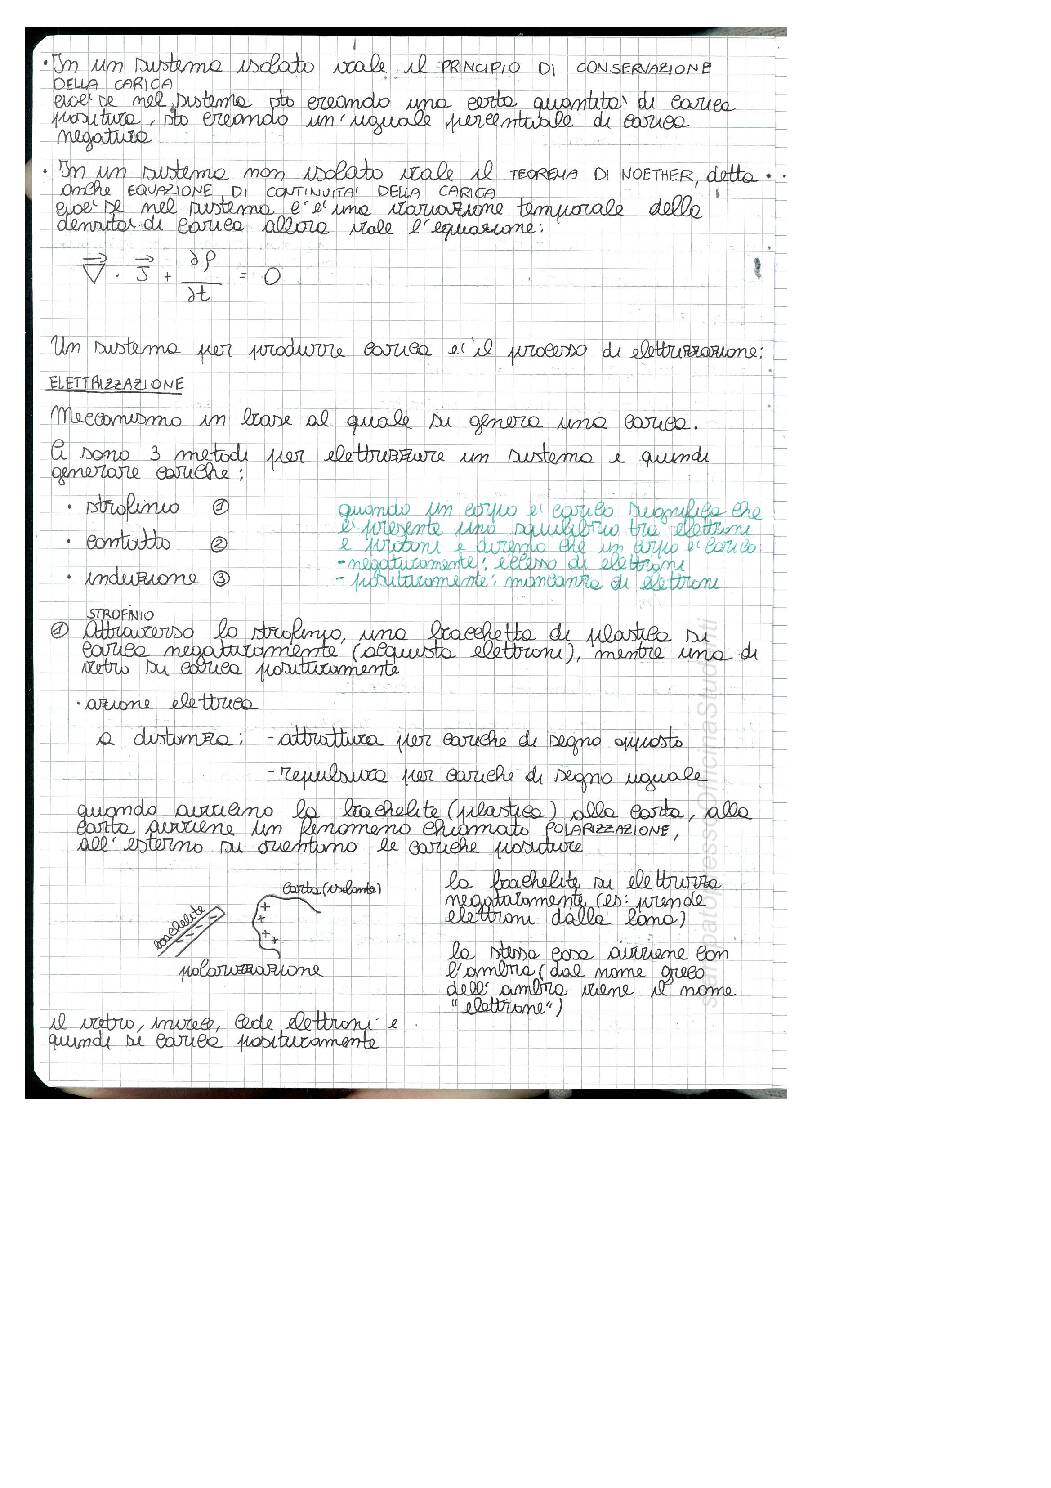 · In un sistema isolato vale il PRINCIPIO DI CONSERVAZIONE
DELLA CARICA
cioe' se nel sistema sto creando una certa quantita' di carica
positiva, sto creando un' uguale percentuale di carica
negativa
· In un sistema non isolato vale il TEOREMA DI NOETHER, detta
anche EQUAZIONE DI CONTINUITA' DELLA CARICA
cioe' se nel sistema c'e' una variazione temporale della
densita' di carica allora vale l'equazione:
∇ · J + ∂ρ/∂t = 0
Un sistema per produrre carica e' il processo di elettrizzazione:
ELETTRIZZAZIONE
Meccanismo in base al quale si genera una carica.
Ci sono 3 metodi per elettrizzare un sistema e quindi
generare cariche:
· strofinio ①
· contatto ②
· induzione ③
quando un corpo e' carico significa che
e' presente uno squilibrio tra elettroni
e protoni e diremo che un corpo e' carico:
- negativamente: eccesso di elettroni
- positivamente: mancanza di elettroni
STROFINIO
① Attraverso lo strofinio, una bacchetta di plastica si
carica negativamente (acquista elettroni), mentre una di
vetro si carica positivamente
· azione elettrica
a distanza: - attrattiva per cariche di segno opposto
- repulsiva per cariche di segno uguale
quando avviciniamo la bachelite (plastica) alla carta, alla
carta avviene un fenomeno chiamato POLARIZZAZIONE,
all' esterno si orientano le cariche positive
carta (isolante)
bachelite
polarizzazione
la bachelite si elettrizza
negativamente (es: prende
elettroni dalla lana)
la stessa cosa avviene con
l'ambra (dal nome greco
dell' ambra viene il nome
"elettrone")
il vetro, invece, cede elettroni e
quindi si carica positivamente